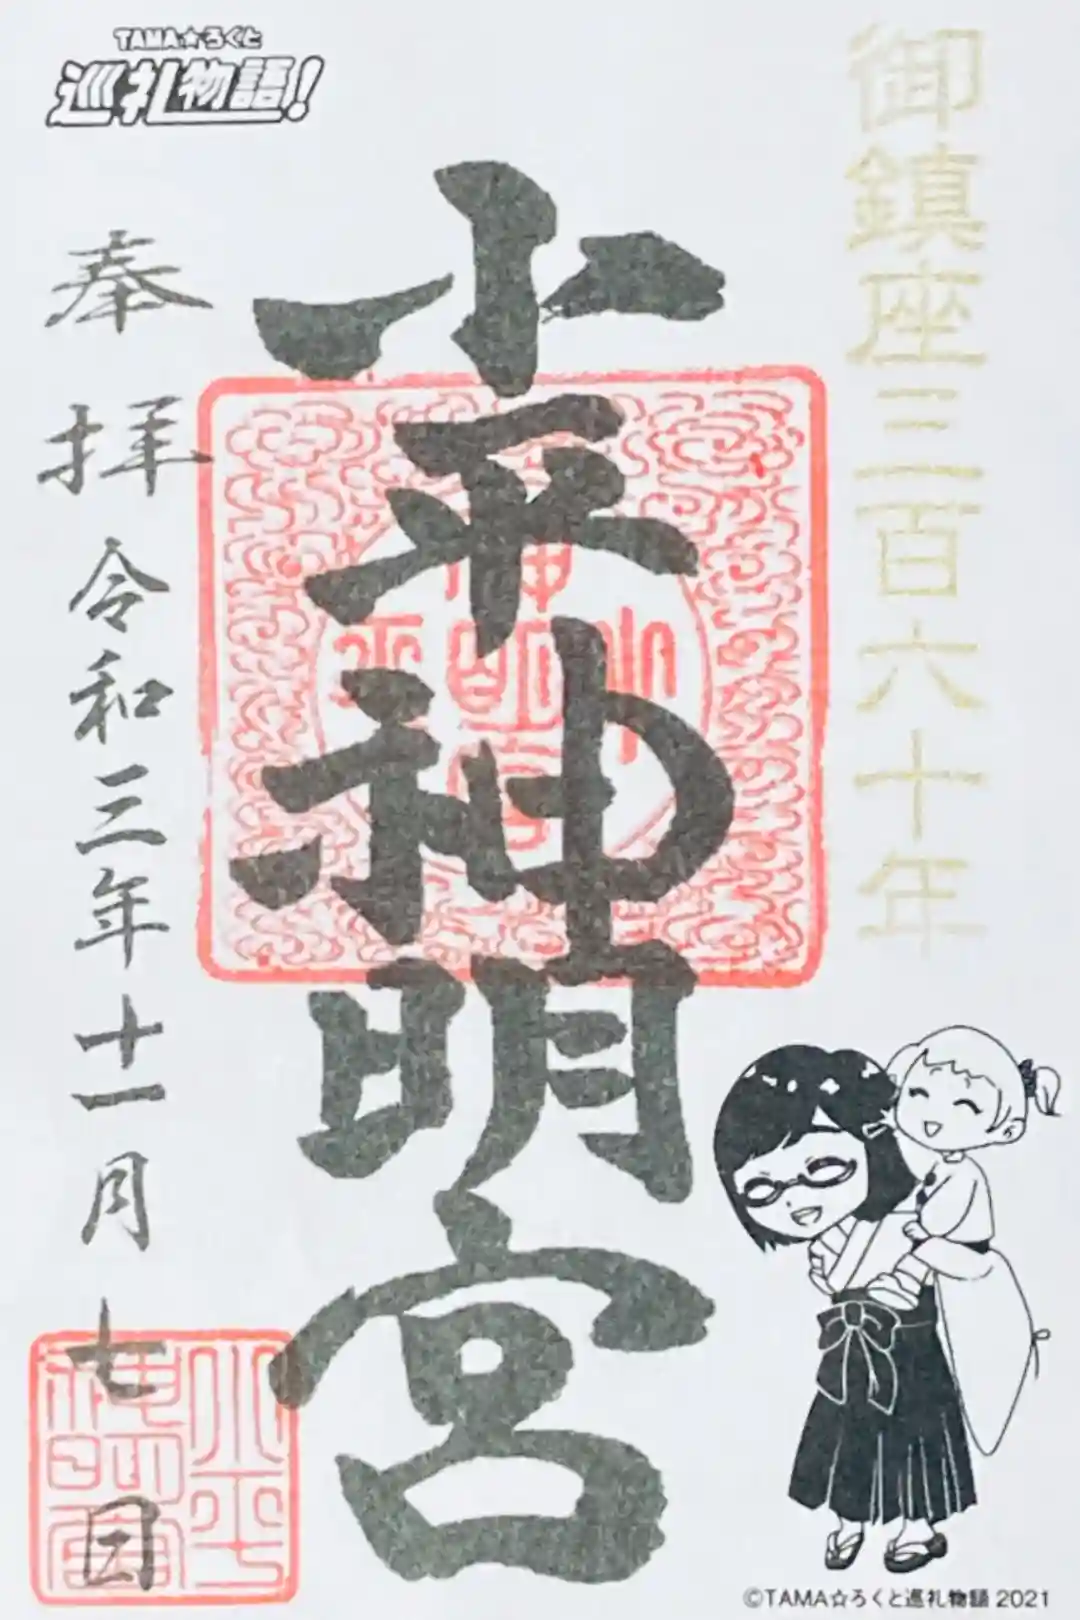 TAMA☆ろくと
巡礼物語!
御鎮座三百六十年
小平神明宮
奉拝
令和三年十一月七日
小平
神明宮
©TAMA☆ろくと巡礼物語 2021